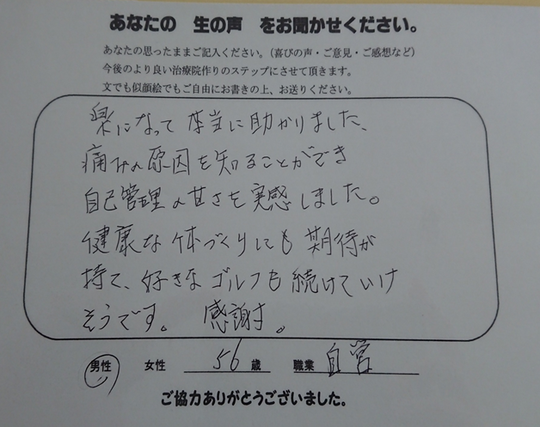 あなたの 生の声 をお聞かせください。
あなたの思ったままご記入ください。（喜びの声・ご意見・ご感想など）
今後のより良い治療院作りのステップにさせて頂きます。
文でも似顔絵でもご自由にお書きの上、お送りください。
楽になって 本当に助かりました、
痛みの原因を知ることができ
自己管理の甘さを実感しました。
健康な体づくりにも期待が
持て、好きなゴルフも続けていけ
そうです。 感謝す。
男性 女性 56 歳 職業 自営
ご協力ありがとうございました。